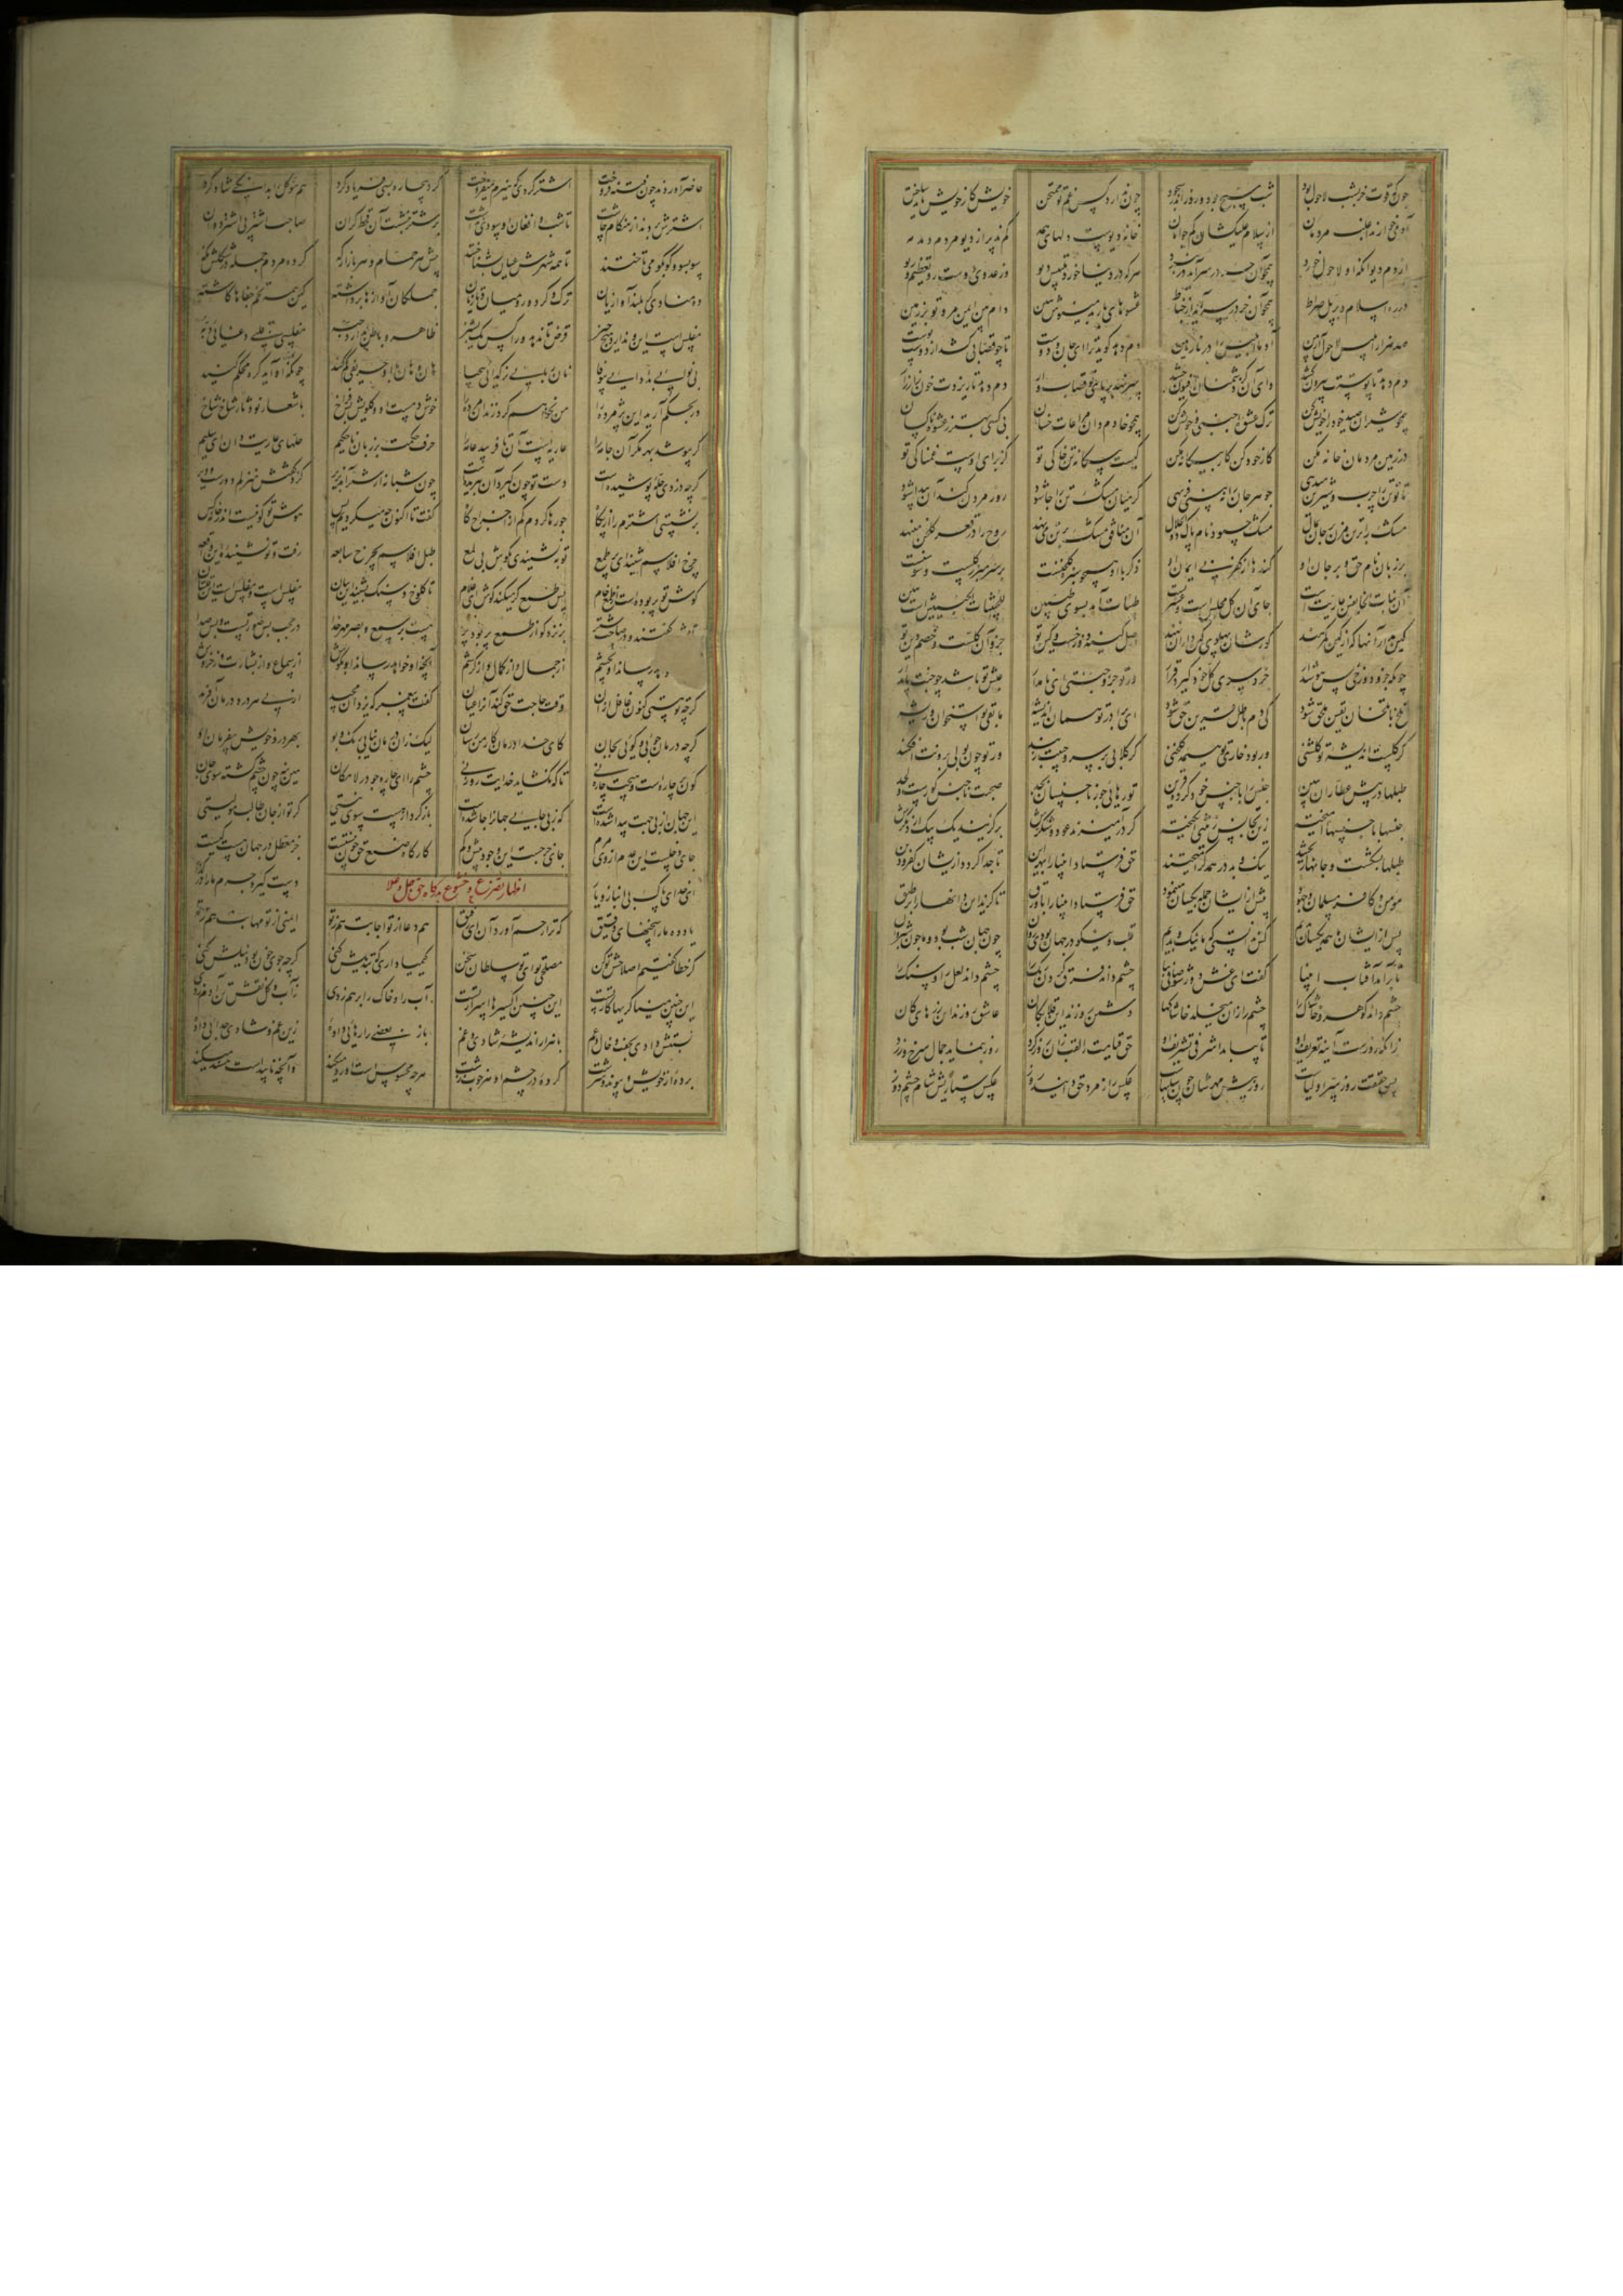 چون که قوت خر بشب لاحول بود شب مسبح بود و روز اندر سجود چون ندارد کس غم تو ممتحن خویش کار خویش باید ساختن
آدمی خوارند اغلب مردمان از سلام علیکشان کم جو امان خانه دیوست دلهای همه کم پذیر از دیو مردم دمدمه
از دم دیو آنکه او لاحول خورد همچو آن خر در سر آید در نبرد هر که در دنیا خورد تلبیس دیو وز عدوی دوست رو تعظیم و ریو
در ره اسلام و بر پل صراط همچو آن خر در سر آید از خباط عشوهای یار بد منیوش هین دام بین ایمن مرو تو بر زمین
صد هزار ابلیس لاحول آر بین آدما ابلیس را در مار بین دم دهد گوید ترا ای جان و دوست تا چو قصابی کشد از دوست پوست
دم دهد تا پوستت بیرون کشد وای آن کز دشمنان افیون چشد سر نهد بر پای تو قصاب وار دم دهد تا ریزدت خون زار زار
همچو شیران صید خود را خویش کن ترک عشوه اجنبی و خویش کن همچو خادم دان مراعات خسان بی کسی بهتر ز عشوه ناکسان
در زمین مردمان خانه مکن کار خود کن کار بیگانه مکن کیست بیگانه تن خاکی تو کز برای اوست غمناکی تو
تا تو تن را چرب و شیرین میدهی جوهر جان را نبینی فربهی گر میان مشک تن را جا شود روز مردن گند آن پیدا شود
مشک را بر تن مزن بر جان بمال مشک چه بود نام پاک ذوالجلال آن منافق مشک بر تن می نهد روح را در قعر گلخن می نهد
بر زبان نام حق و بر جان او گندها از کفر بی ایمان او ذکر با او همچو سبزه گلخنست بر سر مبرز گلست و سوسنست
آن نبات آنجا یقین عاریتست جای آن گل مجلس است و عشرتست طیبات آید بسوی طیبین للخبیثات الخبیثین است هین
کین مدار آنها که از کین گمرهند گورشان پهلوی کین داران نهند اصل کینه دوزخست و کین تو جزو آن کلست و خصم دین تو
چونکه تو جزو دوزخی پس هوش دار جزو سوی کل خود گیرد قرار ور تو جزو جنتی ای نامدار عیش تو باشد چو جنت پایدار
تلخ با تلخان یقین ملحق شود کی دم باطل قرین حق شود ای برادر تو همان اندیشه ما بقی تو استخوان و ریشه
گر گلست اندیشه تو گلشنی ور بود خاری تو هیمه گلخنی گر گلابی بر سر و جیبت زنند ور تو چون بولی برونت افکنند
طبلها در پیش عطاران ببین جنس را با جنس خود کرده قرین تو رهایی جو ز ناجنسان بجد صحبت ناجنس گورست و لحد
جنسها با جنسها آمیخته زین تجانس زینتی انگیخته گر در آمیزند عود و شکرش برگزیند یک یک از دیگرش
طبلها بشکست و جانها ریختند نیک و بد در همدگر آمیختند حق فرستاد انبیا را بهر این تا جدا گردد ازیشان کفر و دین
مومن و کافر مسلمان و جهود پیش ازیشان جمله یکسان می نمود حق فرستاد انبیا را با ورق تا گزید این دانها را بر طبق
پیش ازیشان ما همه یکسان بدیم کس ندانستی که ما نیک و بدیم قلب و نیکو در جهان بودی روان چون جهان شب بود و ما چون شب روان
تا بر آمد آفتاب انبیا گفت ای غش دور شو صافی بیا چشم داند فرق کردن رنگ را چشم داند لعل را و سنگ را
چشم داند گوهر و خاشاک را چشم را زان می خلد خاشاکها دشمن روزند این قلابکان عاشق روزند آن زرهای کان
زانکه روزست آینه تعریف او تا ببیند اشرفی تشریف او حق قیامت را لقب زان روز کرد روز بنماید جمال سرخ و زرد
پس حقیقت روز سر اولیاست روز پیش مهرشان چون سایهاست عکس راز مرد حق دانید روز عکس ستاریش شام چشم دوز
حاضر آوردند چون فتنه فروخت اشتر کردی که هیزم می فروخت کرد بیچاره بسی فریاد کرد هم موکل را بدانگی شاد کرد
اشترش بردند از هنگام چاشت تا شب و افغان او سودی نداشت بر شتر بنشست آن قحط گران صاحب اشتر پی اشتر دوان
سو بسو و کو بکو می تاختند تا همه شهرش عیان بشناختند پیش هر حمام و هر بازارگه کرده مردم جمله در شکلش نگه
ده منادی گر بلند آوازیان ترک و کرد و رومیان و تازیان جملگان آوازها برداشته کین همه تخم جفاها کاشته
مفلس است این و ندارد هیچ چیز قرض ندهد کس ورا یک پشیز ظاهر و باطن ندارد حبه مفلسی قلبی دغایی دبه
بی نوایی بد ادایی بی وفا نان ربایی نر گدایی بی حیا هان و هان با او حریفی کم کنید چونکه گاو آرد گره محکم کنید
ور بحکم آرید این پژمرده را من نخواهم کرد زندان مرده را خوش دمست او و گلویش بس فراخ با شعار نو دثار شاخ شاخ
گر بپوشد بهر مکر آن جامه را عاریه است آن تا فریبد عامه را حرف حکمت بر زبان ناحکیم حلهای عاریت دان ای سلیم
گرچه دزدی حله پوشیده است دست تو چون گیرد آن ببریده دست چون شبانه از شتر آمد بزیر کرد گفتش منزلم دورست و دیر
بر نشستی اشترم را از پگاه جو رها کردم کم از اخراج کاه گفت تا اکنون چه می کردیم پس هوش تو کو نیست اندر خانه کس
چرخ افلاسم شنید ای پر طمع تو بنشنیدی بگوش بی لمع طبل افلاسم بچرخ سابعه رفت و تو نشنیده این واقعه
گوش تو پر بوده است از طمع خام پس طمع کر میکند گوش ای غلام تا کلوخ و سنگ بشنید این بیان مفلس است و مفلس است این قلتبان
تا بشب گفتند و در صاحب شتر بر نزد کو از طمع پر بود پر هست بر سمع و بصر مهر خدا در حجب بس صورتست و بس صدا
رساند او بچشم از جمال و از کمال و از کرشم آنچه او خواهد رساند او بگوش از سماع و از بشارت وز خروش
گرچه تو هستی کنون غافل از آن وقت حاجت حق کند آنرا عیان گفت پیغمبر که یزدان مجید از پی هر درد درمان آفرید
گرچه درمان جویی و گویی بجان کای خدا درمان کار من رسان لیک زان درمان نیابی رنگ و بو بهر درد خویش بی فرمان او
کون پر چاره است و هیچت چاره نی تا که نگشاید خدایت روزنی چشم را ای چاره جو در لامکان هین بنه چون چشم کشته سوی جان
این جهان از بی جهت پیدا شده است که ز بی جایی جهان را جا شده است باز گرد از هست سوی نیستی گر تو از جان طالب مولیستی
جای دخلست این عدم از وی مرم جای خرجست این وجود بیش و کم کارگاه صنع حق چون نیستیست جز معطل در جهان هست کیست
اظهار تضرع و خشوع بدرگاه حق جل و علا
ای خدای پاک بی انباز و یار دست گیر و جرم ما را در گذار
یاد ده ما را سخنهای دقیق که ترا رحم آورد آن ای رفیق هم دعا از تو اجابت هم ز تو ایمنی از تو مهابت هم ز تو
گر خطا گفتیم اصلاحش تو کن مصلحی تو ای تو سلطان سخن کیمیا داری که تبدیلش کنی گرچه جوی خون بود نیلش کنی
این چنین میناگریها کار تست این چنین اکسیرها اسرار تست آب را و خاک را بر هم زدی ز آب و گل نقش تن آدم زدی
نسبتش دادی بجفت و خال و عم با هزار اندیشه شادی و غم باز بعضی را رهایی داده زین غم و شادی جدایی داده
برده از خویش و پیوند و سرشت کرده در چشم او هر خوب زشت هر چه محسوس است او رد میکند و آنچه ناپیداست مسند میکند